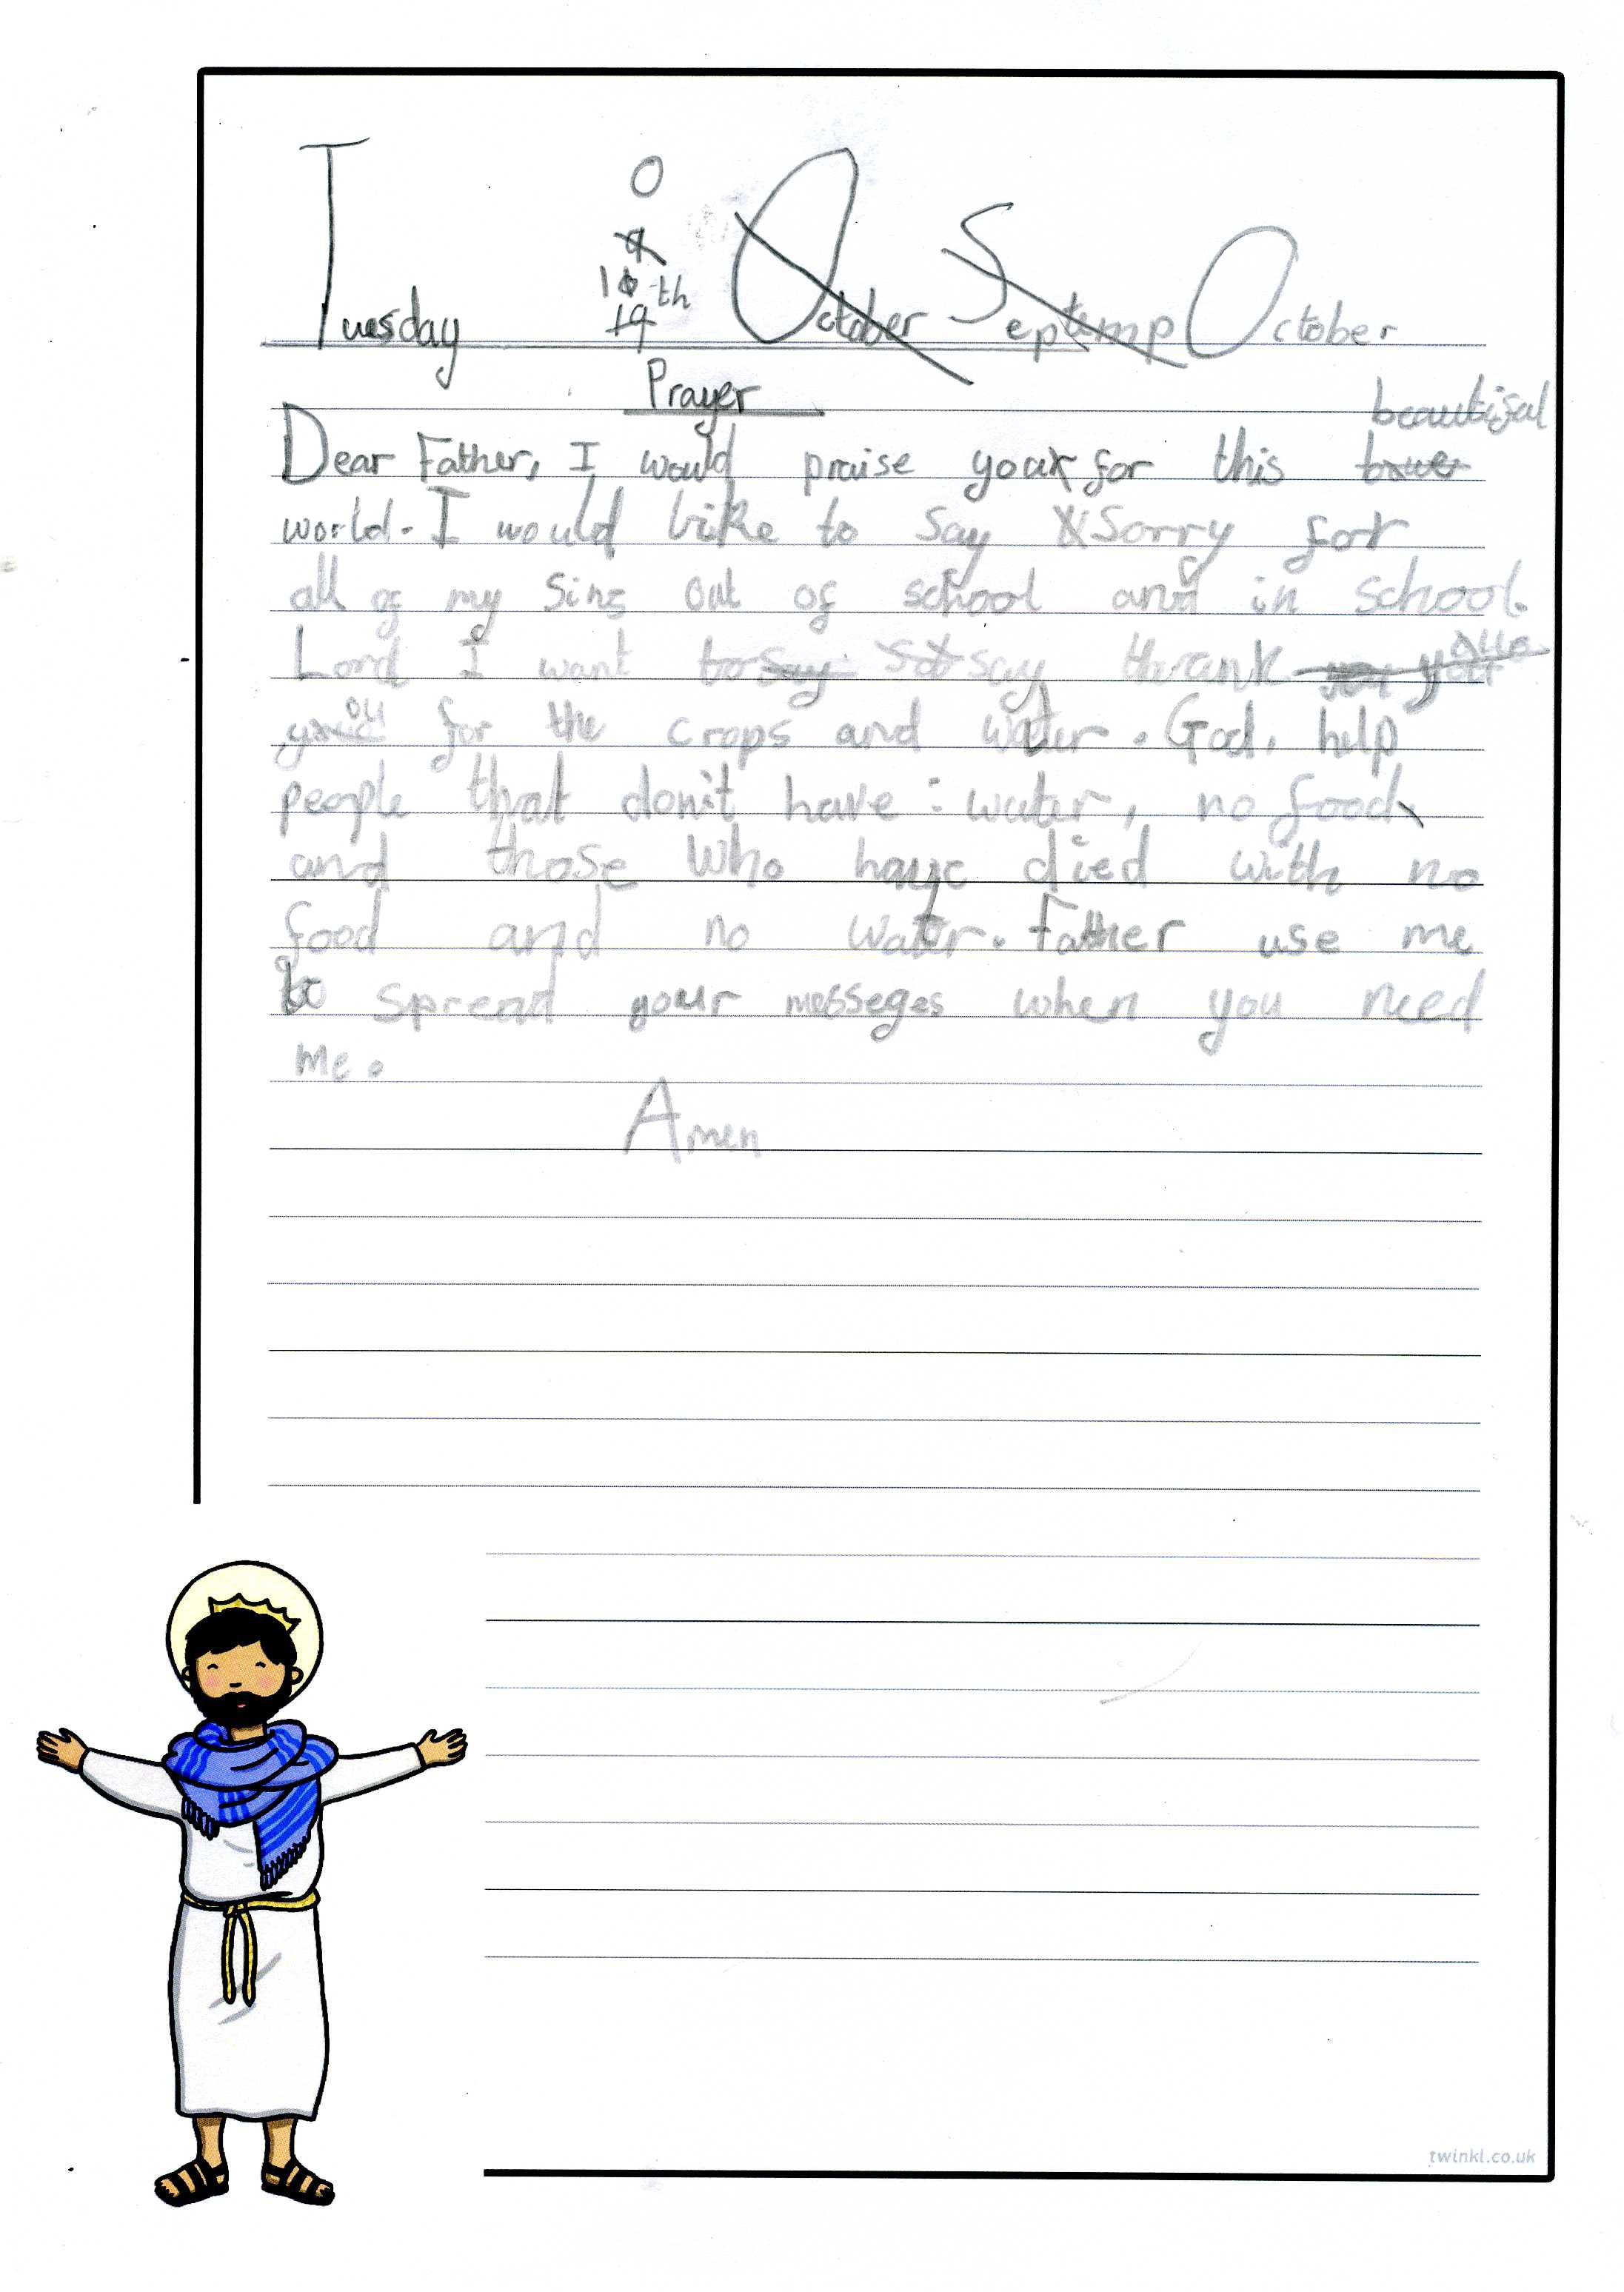 Tuesday 19th October Septemp October
Prayer
beautiful
Dear Father, I would praise you for this
world. I would like to say sorry for
all of my sins out of school and in school.
Lord I want to say say thank
you for the crops and water. God, help
people that don't have : water, no food,
and those who have died with no
food and no water. Father use me
to spread your messeges when you need
me.
Amen
twinkl.co.uk